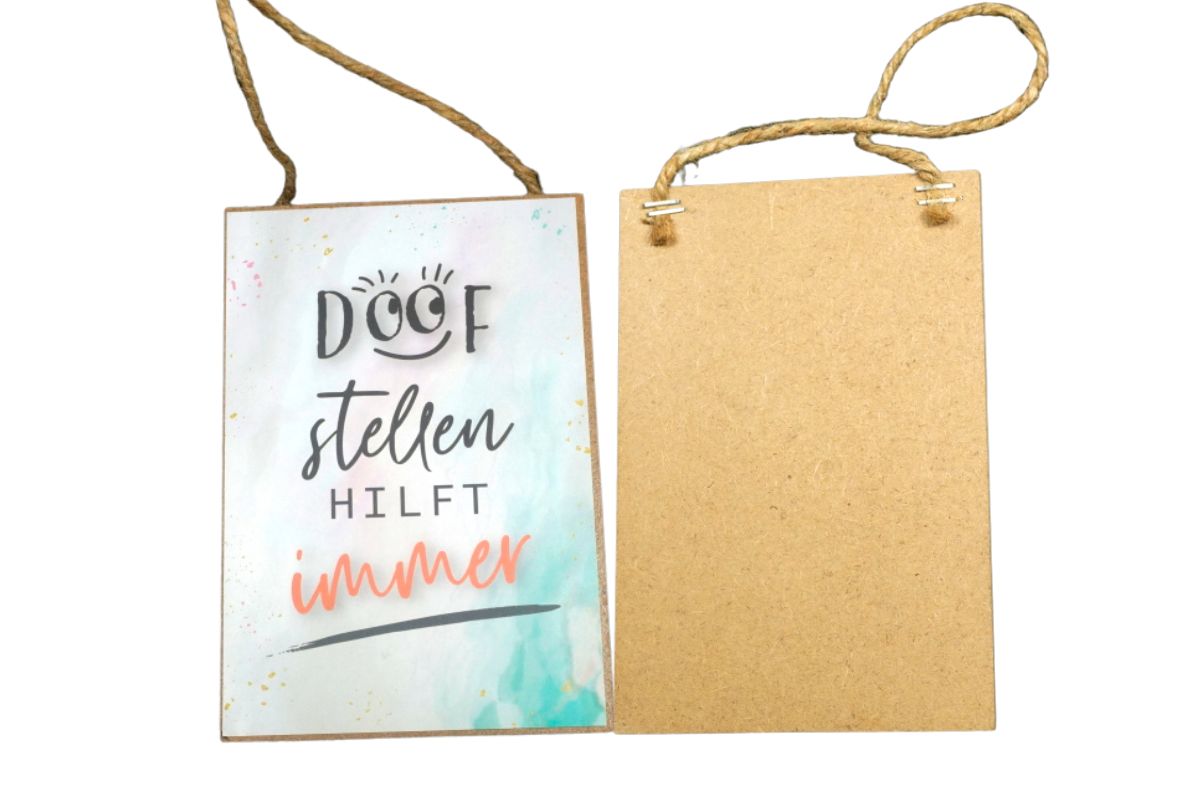 DOOF
stellen
HILFT
immer